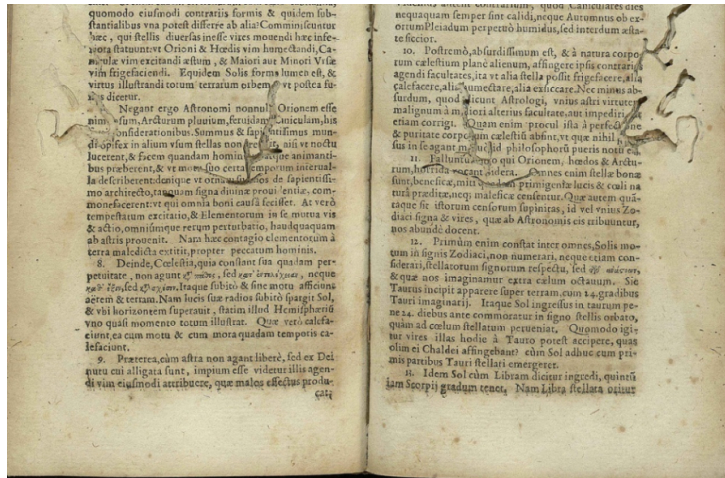 quomodo eiusmodi contrariis formis & quidem sub-
stantialibus vna potest differre ab alia? Comminiscuntur
hæc, qui stellis diuersas inesse vires mouendi hæc infe-
riora statuunt: vt Orioni & Hœdis vim humectandi, Ca-
vim excitandi æstum, & Maiori aut Minori Vrsæ
vim frigefaciendi. Equidem Solis forma lumen est, &
virtus illustrandi totum terrarum orbem, vt postea fu-
sius dicetur.
Negant ergo Astronomi nonnulli Orionem esse
Arcturum pluuium, feruidam Caniculam, his
considerationibus. Summus & sapientissimus mun-
di opifex in alium vsum stellas non nisi vt noctu
lucerent, & facem quandam hominibus animanti-
bus præberent, & vt motu suo certa temporum interual-
la describerent: denique vt de sapientissi-
mo architecto, tanquam signa diuinæ prouidentiæ, com-
monefacerent: vt qui omnia boni causa fecisset. At verò
tempestatum excitatio, & Elementorum in se mutua vis
& actio, omniumque rerum perturbatio, haudquaquam
ab astris prouenit. Nam hæc contagio elementorum à
terra maledicta extitit, propter peccatum hominis.
8. Deinde, Cœlestia, quia constant sua quadam per-
petuitate, non agunt sed neque
sed Itaque subitò & sine motu afficiunt
aërem & terram. Nam lucis suæ radios subitò spargit Sol,
& vbi horizontem superauit, statim illud Hemisphæriũ
vno quasi momento totum illustrat. Quæ verò calefa-
ciunt, ea cum motu & cum mora quadam temporis ca-
lefaciunt.
9. Præterea, cùm astra non agant liberè, sed ex Dei
nutu cui alligata sunt, impium esse videtur illis agen-
di vim eiusmodi attribuere, quæ malos effectus produ-
cat:
contrarium, quod Caniculares dies
nequaquam semper sint calidi, neque Autumnus ob ex-
ortum Pleiadum perpetuò humidus, sed interdum æsta-
te siccior.
10. Postremò, absurdissimum est, & à natura corpo
rum cælestium planè alienum, affingere ipsis contrarias
agendi facultates, ita vt alia stella possit frigefacere, alia
calefacere, alia humectare, alia exsiccare. Nec minus ab-
surdum, quod dicunt Astrologi, vnius astri virtutem
malignam à alterius facultate, aut impediri
etiam corrigi. Quam enim procul ista à perfectione
& puritate corporum cælestiũ absint, vt quæ nihil
sus in se agant philosophorũ pueris notũ est.
11. Falluntur qui Orionem, hœdos & Arctu-
rum, horrida vocant sidera. Omnes enim stellæ bonæ
sunt, beneficæ, primigeniæ lucis & cœli na
turâ præditæ, neque maleficæ censentur. Quæ autem quã-
taque sit istorum censorum supinitas, id vel vnius Zo-
diaci signa & vires, quæ ab Astronomis eis tribuuntur,
nos abundè docent.
12. Primùm enim constat inter omnes, Solis mo-
tum in signis Zodiaci, non numerari, neque etiam con-
siderari, stellatorum signorum respectu, sed
& quæ nos imaginamur extra cælum octauum. Sic
Taurus incipit apparere super terram, cum 24. gradibus
Tauri imaginarij. Itaque Sol ingressus in taurum pe-
ne 24. diebus ante commoratur in signo stellis orbato,
quàm ad cœlum stellatum perueniat. Quomodo igi-
tur vires illas hodie à Tauro potest accipere, quas
olim ei Chaldei affingebant? cùm Sol adhuc cum pri-
mis partibus Tauri stellati emergeret.
13. Idem Sol cùm Libram dicitur ingredi, quintũ
iam Scorpij gradum tenet. Nam Libra stellata oritur